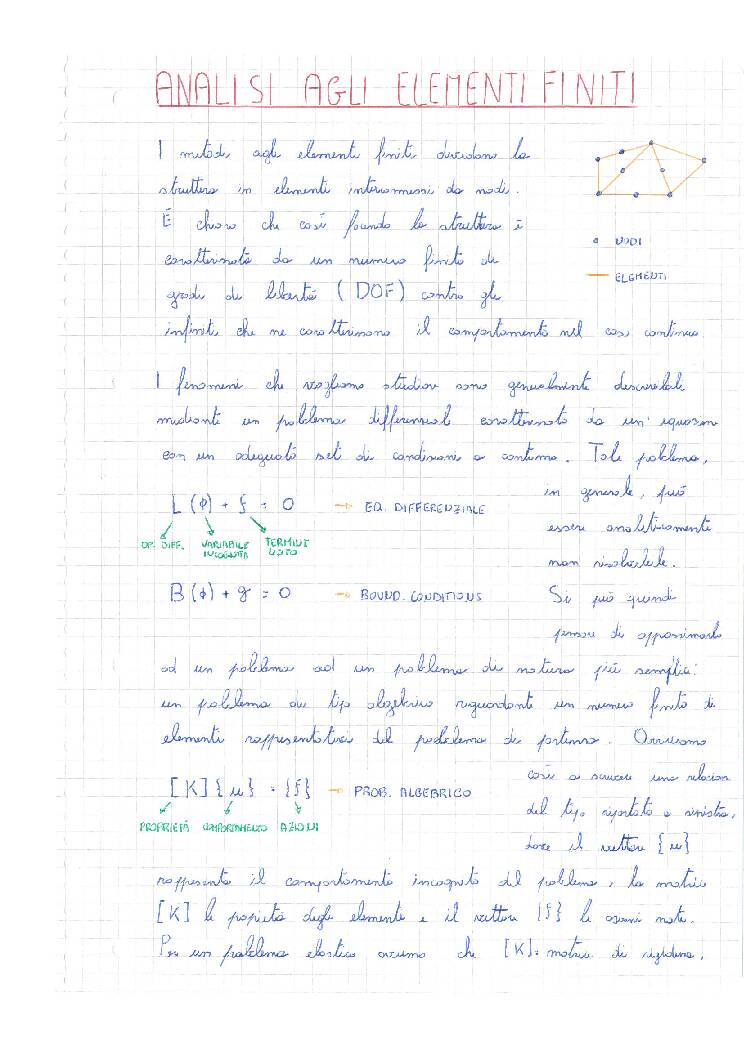 ANALISI AGLI ELEMENTI FINITI
I metodi agli elementi finiti discretizzano la
struttura in elementi interconnessi da nodi.
È chiaro che così facendo la struttura è
caratterizzata da un numero finito di
gradi di libertà (DOF) contro gli
infiniti che ne caratterizzano il comportamento nel caso continuo.
NODI
ELEMENTI
I fenomeni che vogliamo studiare sono generalmente descrivibili
mediante un problema differenziale caratterizzato da un'equazione
con un adeguato set di condizioni a contorno. Tale problema,
in generale, può
essere analiticamente
non risolvibile.
Si può quindi
pensare di approssimarlo
L(ϕ) + f = 0 → EQ. DIFFERENZIALE
OP. DIFF. VARIABILE INCOGNITA TERMINE NOTO
B(ϕ) + g = 0 → BOUND. CONDITIONS
ad un problema ad un problema di natura più semplice:
un problema di tipo algebrico riguardante un numero finito di
elementi rappresentativi del problema di partenza. Arriviamo
così a scrivere una relazione
del tipo riportato a sinistra,
dove il vettore {u}
[K]{u} = {f} → PROB. ALGEBRICO
PROPRIETÀ COMPORTAMENTO AZIONI
rappresenta il comportamento incognito del problema, la matrice
[K] le proprietà degli elementi e il vettore {f} le azioni note.
Per un problema elastico avremo che [K] = matrice di rigidezza,